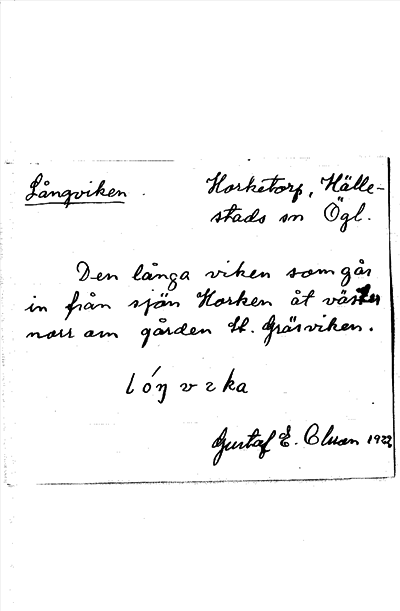 Långviken. Horketorp, Hälle-
stads sn Ögl.
Den långa viken som går
in från sjön Horken åt väster
norr om gården St. Gräsviken.
lóŋvɛka
Gustaf E. Olsson 1922